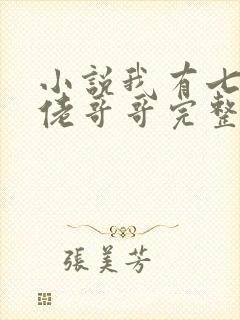 小說我有七
佬哥哥完整
張美芳